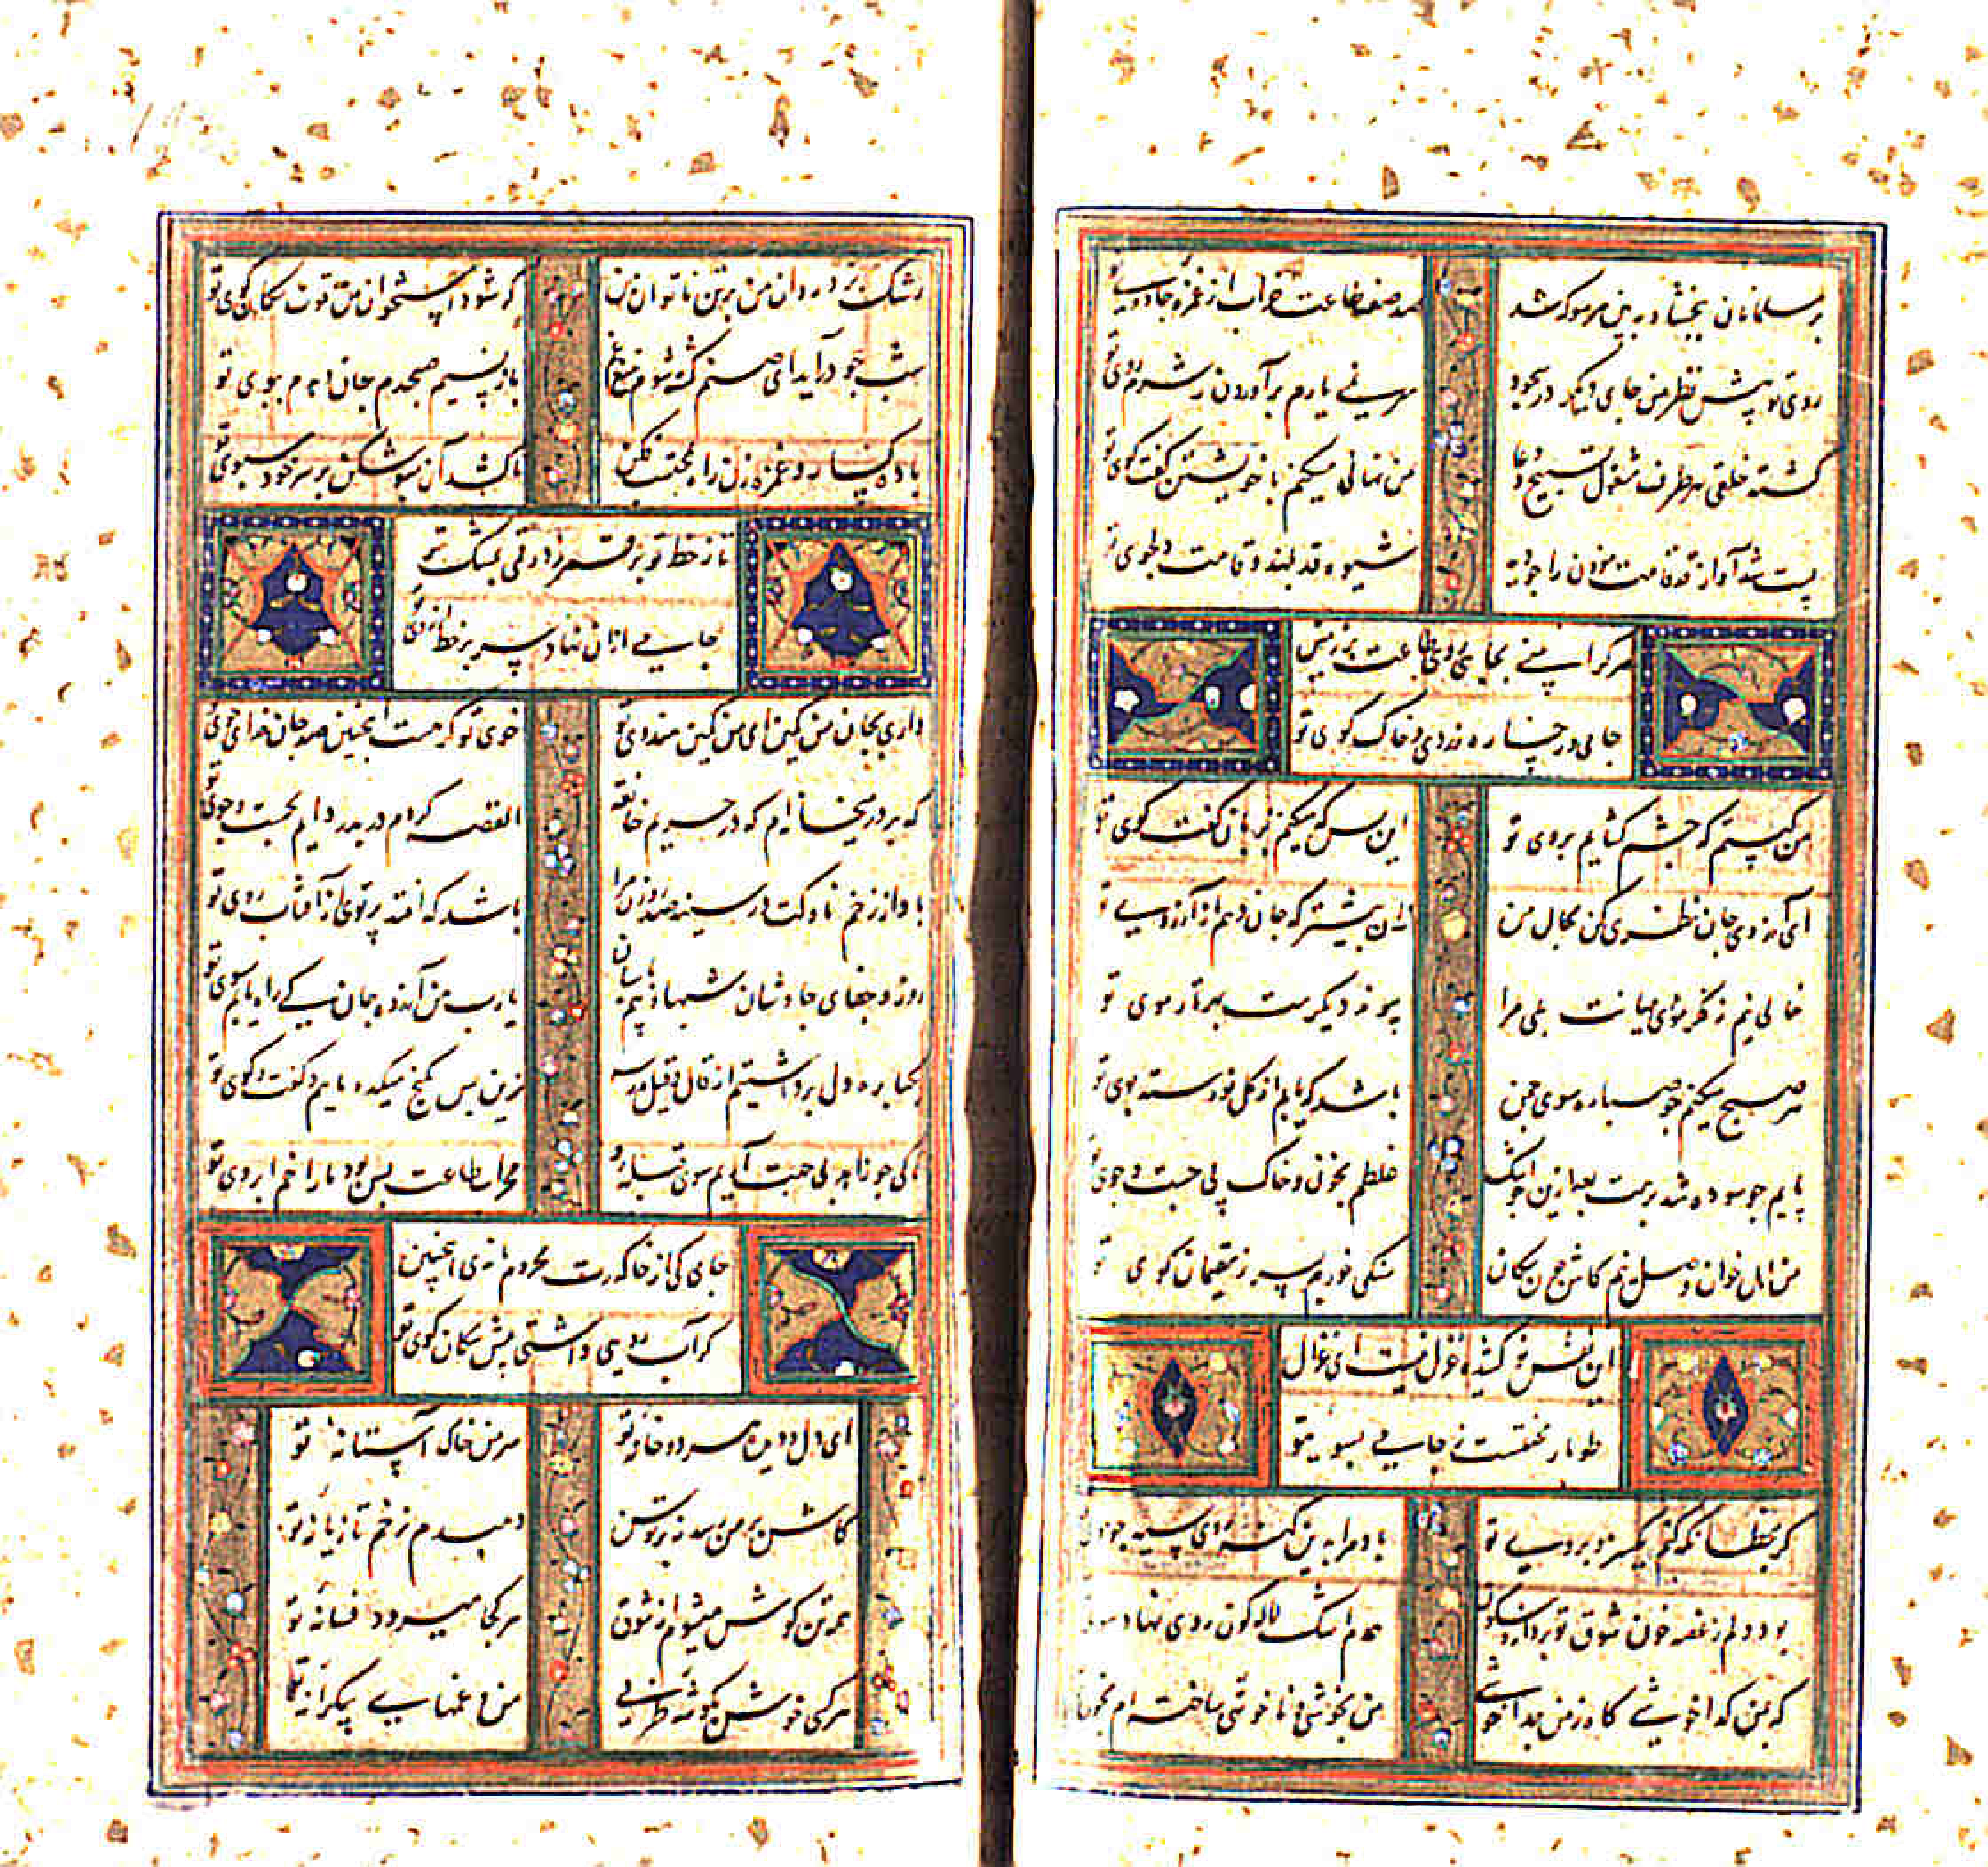 بر مسلمانان ببخشا و ببین هر سو که شد
صد صف طاعت خراب از غمزه جادوی تو
روی تو پیش نظر من جای دیگر در سجود
سر نمی یارم برآوردن ز شرم روی تو
گشته خلقی هر طرف مشغول تسبیح و دعا
من نهانی میکنم با خویشتن گفت و گوی تو
پست شد آواز قد قامت موذن را چو دید
شیوه قد بلند و قامت دلجوی تو
هر کرا بینی بجایی روی طاعت بر زمین
جامی و رخساره زردی و خاک کوی تو
من کیستم که چشم گشایم بروی تو
این بس که میکنم بزبان گفت و گوی تو
ای آرزوی جان نظری کن بحال من
زان پیشتر که جان دهم از آرزوی تو
خالی نیم ز فکر موی میانت بلی مرا
پیوند دیگرست بهر تار موی تو
هر صبح میکنم چو صبا ره سوی چمن
باشد که یابم از گل نورسته بوی تو
پایم چو سوده شد برهت بعد ازین چو اشک
غلطم بخون و خاک پی جست و جوی تو
من اهل خوان وصل نیم کاش چون سگان
سنگی خورم بسر ز مقیمان کوی تو
این نظم نو کشیده غزل نیست ای غزال
طومار محنتست ز جامی بسوی تو
یاد مرا بدین گنه روی سیه چو
بود دلم ز غصه خون شوق تو
هم اشک لاله گون روی نهاد
که بمن گدا خوشی گاه ز من جدا خوشی
من بخوشی و ناخوشی ساخته ام
رشک برد روان من بر تن ناتوان من
گر شود استخوان من قوت سگان کوی تو
شب چو درآید ای صنم کشته شوم ز تیغ غم
باز بنسیم صبحدم جان دهدم ببوی تو
باده گسار و غمزه زن راه محتسب فکن
تا کشد آن سبو شکن بر سر خود سبوی تو
تا ز خط تو بر قمر زد رقمی بمشک تر
جامی از آن نهاد سر بر خط آرزوی تو
داری بجان من کمین ای من کمین هندوی تو
خوی تو گر هست اینچنین صد جان فدای خوی تو
گه بر در میخانه ام گه در حریم خانقه
القصه گردم در بدر دایم بجست و جوی تو
بادا ز زخم ناوکت در سینه صد روزن مرا
باشد که افتد پرتوی از آفتاب روی تو
روز و جفای چاوشان شبها و بیم پاسبان
یا رب من آزرده جان کی راه یابم سوی تو
یکباره دل برداشتیم از قال و قیل مدرسه
زین پس کنج میکده ماییم و گفت و گوی تو
تا کی چو زاهد بی جهت آیم سوی قبله رو
محراب طاعت بس بود ما را خم ابروی تو
جامی کی از خاک درت محروم ماندی اینچنین
گر آب رویی داشتی پیش سگان کوی تو
ای دل و دین ما هر دو خانه تو
سر من خاک آستانه تو
کاش بر من رسد نه بر توسن
دمبدم زخم تازیانه تو
همه تن گوش میشوم از شوق
هر کجا میرود فسانه تو
هر کس خوش بگوشه طربی
من و غمهای بیکرانه تو